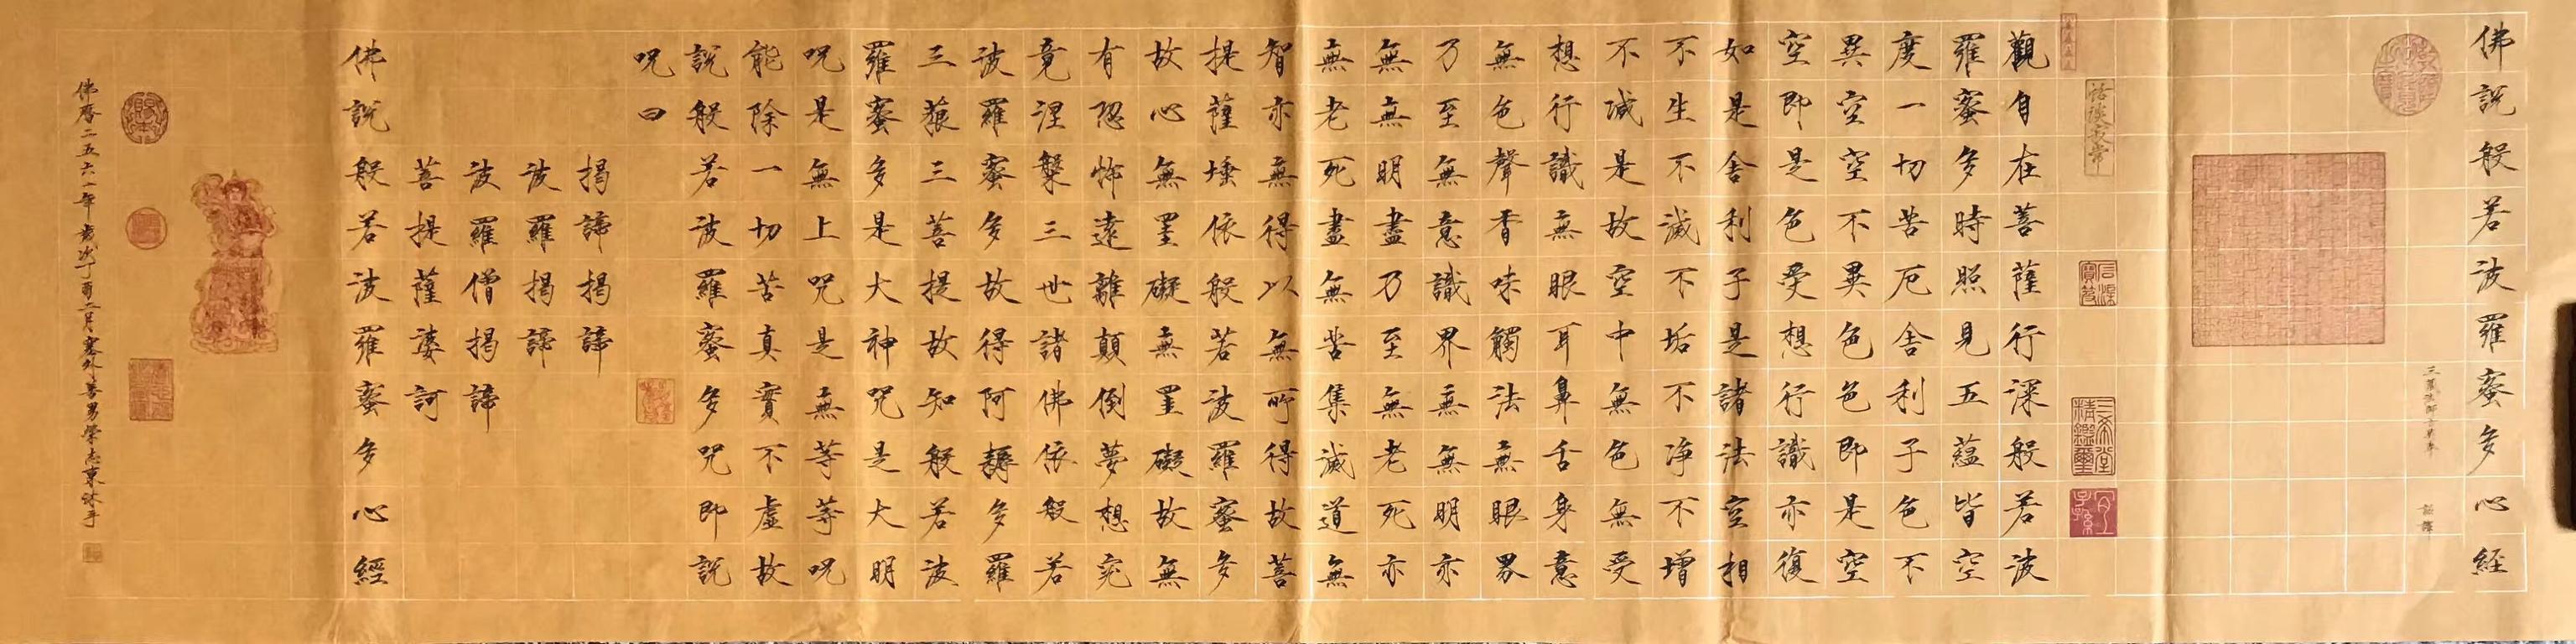 佛說般若波羅蜜多心経
三藏法師玄奘奉 詔譯
石渠寶笈
三希堂精鑑璽
宜子孫
觀自在菩薩行深般若波
羅蜜多時照見五蘊皆空
度一切苦厄舍利子色不
異空空不異色色即是空
空即是色受想行識亦復
如是舍利子是諸法空相
不生不滅不垢不净不增
不減是故空中無色無受
想行識無眼耳鼻舌身意
無色聲香味觸法無眼界
乃至無意識界無無明亦
無無明盡乃至無老死亦
無老死盡無苦集滅道無
智亦無得以無所得故菩
提薩埵依般若波羅蜜多
故心無罣礙無罣礙故無
有恐怖遠離顛倒夢想究
竟涅槃三世諸佛依般若
波羅蜜多故得阿耨多羅
三藐三菩提故知般若波
羅蜜多是大神呪是大明
呪是無上呪是無等等呪
能除一切苦真實不虛故
說般若波羅蜜多呪即說
呪曰
揭諦揭諦
波羅揭諦
波羅僧揭諦
菩提薩婆訶
佛說般若波羅蜜多心經
佛曆二五六一年歲次丁酉二月塞外善男榮志東沐手